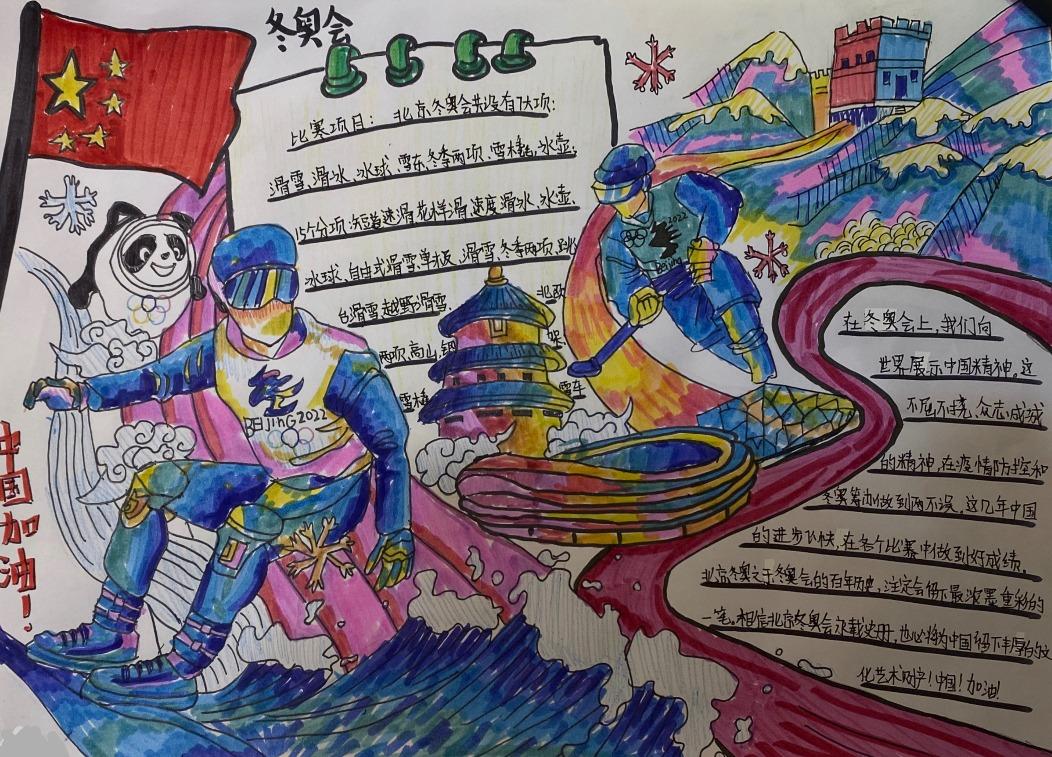 冬奥会
比赛项目： 北京冬奥会共设有7大项：
滑雪、滑冰、冰球、雪车、冬季两项、雪橇、冰壶，
15个分项：短道速滑、花样滑、速度滑冰、冰壶、
冰球、自由式滑雪、单板、滑雪、冬季两项、跳
台滑雪、越野滑雪、 北欧
两项、高山、钢 架
雪橇 雪车
2022
Beijing
BEIJING2022
中国加油！
在冬奥会上，我们向
世界展示中国精神。这
不屈不挠、众志成城
的精神，在疫情防控和
冬奥筹办做到两不误。这几年中国
的进步飞快，在各个比赛中做到好成绩。
北京冬奥之于冬奥会的百年历史，注定会留下最浓墨重彩的
一笔。相信北京冬奥会永载史册，也必将为中国留下丰厚的文
化艺术财富！中国！加油！